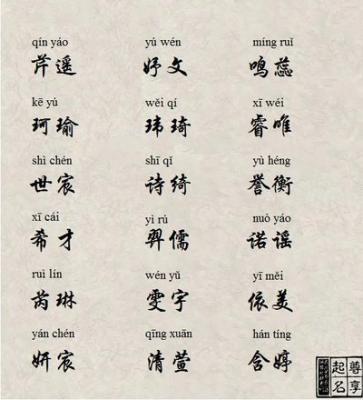 qín yáo yǔ wén míng ruǐ
芹遥 妤文 鸣蕊
kē yú wěi qí xī wéi
珂瑜 玮琦 睿唯
shì chén shī qǐ yù héng
世宸 诗绮 誉衡
xī cái yì rú nuò yáo
希才 羿儒 诺谣
ruì lín wén yǔ yī měi
芮琳 雯宇 依美
yán chén qīng xuān hán tíng
妍宸 清萱 含婷
尊享
起名